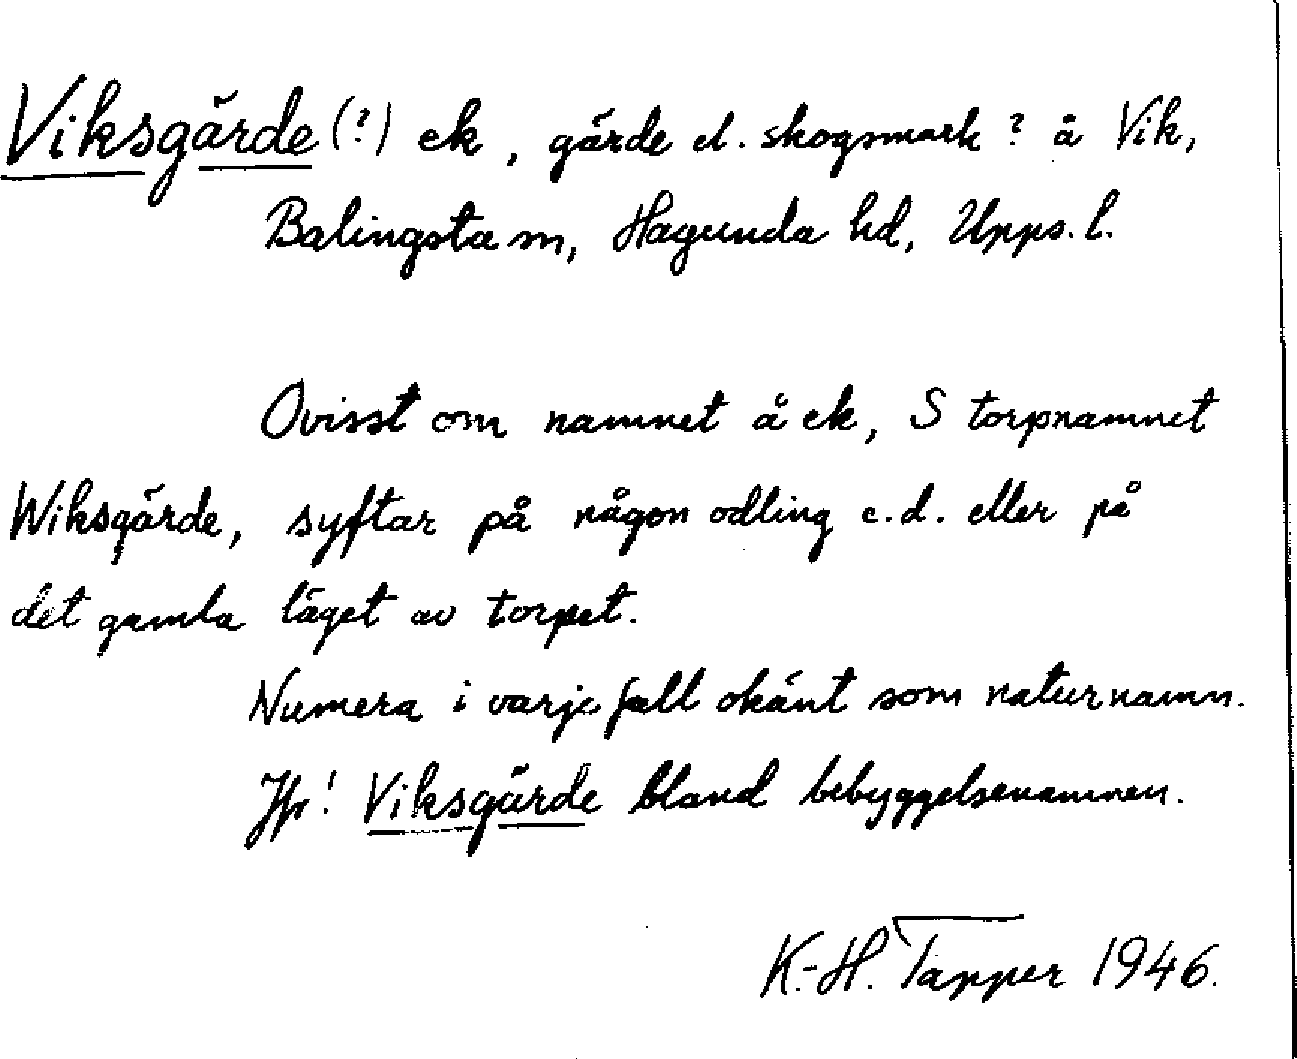 Viksgärde (?) ek, gärde el. skogsmark? å Vik,
Balingsta sn, Hagunda hd, Upps. l.
Ovisst om namnet å ek, S torpnamnet
Wiksgärde, syftar på någon odling e.d. eller på
det gamla läget av torpet.
Numera i varje fall okänt som naturnamn.
Jfr! Viksgärde bland bebyggelsenamnen.
K.-H. Tapper 1946.